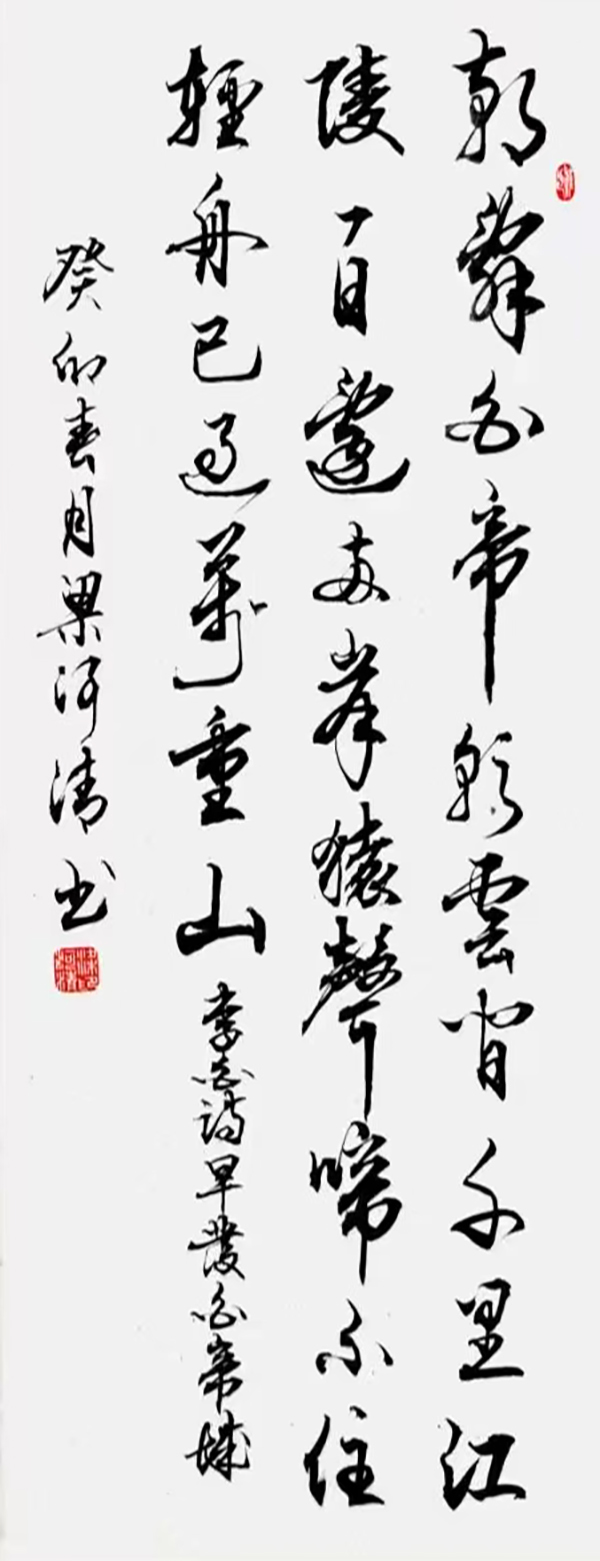 朝辭白帝彩雲間千里江
陵一日還兩岸猿聲啼不住
輕舟已過萬重山 李白詩早發白帝城
癸卯春月梁河清书